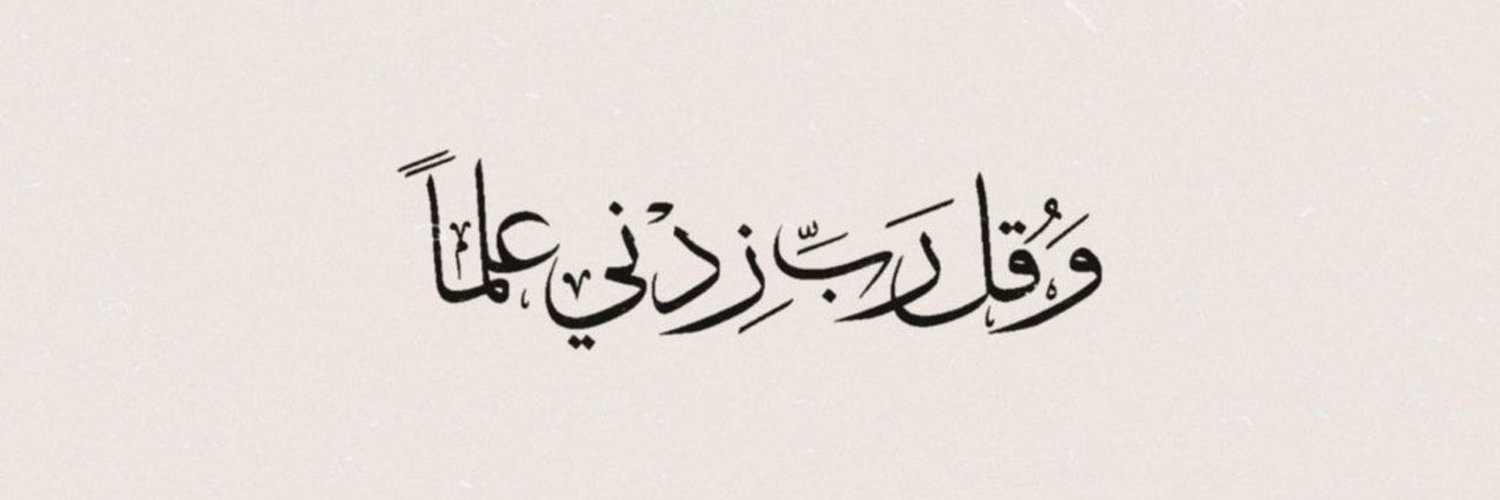 وَقُل رَبِّ زِدْني علماً